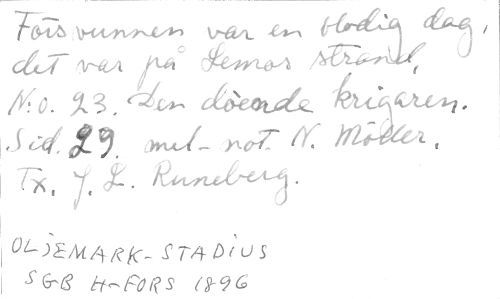 Försvunnen var en blodig dag,
det var på Lemos strand,
N:o. 23. Den döende krigaren.
Sid. 29. mel-not. N. Möller.
Tx. J. L. Runeberg.
OLJEMARK-STADIUS
SGB H-FORS 1896